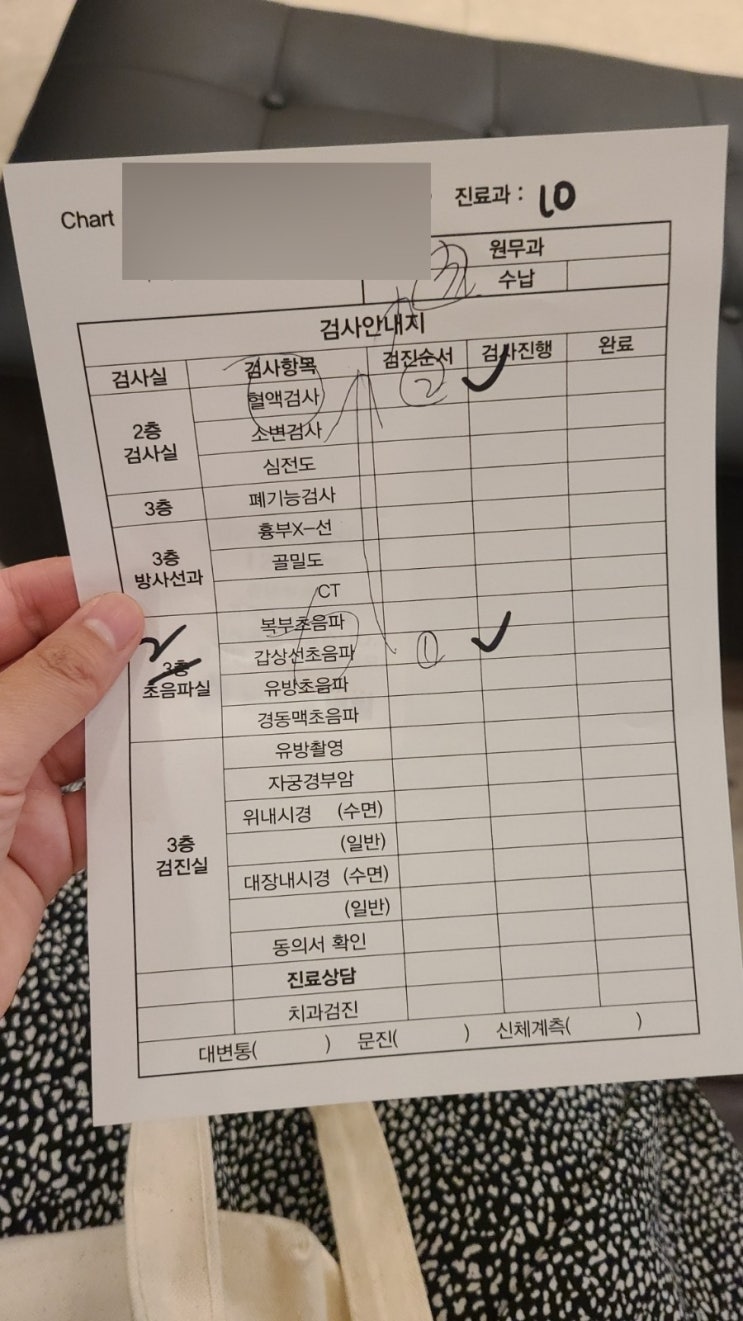 Chart
진료과 : 10
원무과
③ 수납
검사안내지
검사실 검사항목 검진순서 검사진행 완료
2층 검사실
혈액검사 ② ✓
소변검사
심전도
3층 폐기능검사
3층 방사선과
흉부X-선
골밀도
CT
3층 초음파실
복부초음파
갑상선초음파 ① ✓
유방초음파
경동맥초음파
3층 검진실
유방촬영
자궁경부암
위내시경 (수면)
(일반)
대장내시경 (수면)
(일반)
동의서 확인
진료상담
치과검진
대변통( ) 문진( ) 신체계측( )